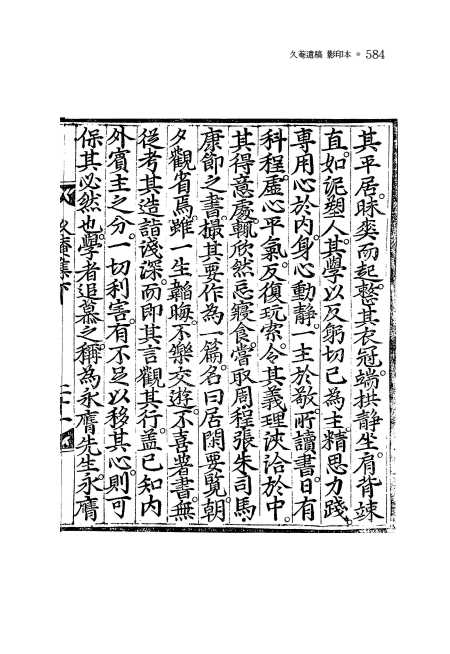 久菴遺稿 影印本 ● 584
其平居。昧爽而起。整其衣冠。端拱靜坐。肩背竦
直。如泥塑人。其學以反躬切己為主。精思力踐。
專用心於內。身心動靜。一主於敬。所讀書。日有
科程。虛心平氣。反復玩索。令其義理浹洽於中。
其得意處。輒欣然忘寢食。嘗取周程張朱司馬
康節之書。撮其要作為一篇。名曰居閑要覽。朝
夕觀省焉。雖一生韜晦。不樂交遊。不喜著書。無
從考其造詣淺深。而即其言觀其行。盖已知內
外賓主之分。一切利害。有不足以移其心。則可
保其必然也。學者追慕之。稱為永膺先生。永膺